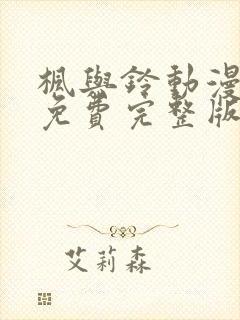 楓與鈴動漫
免費完整版
艾莉森